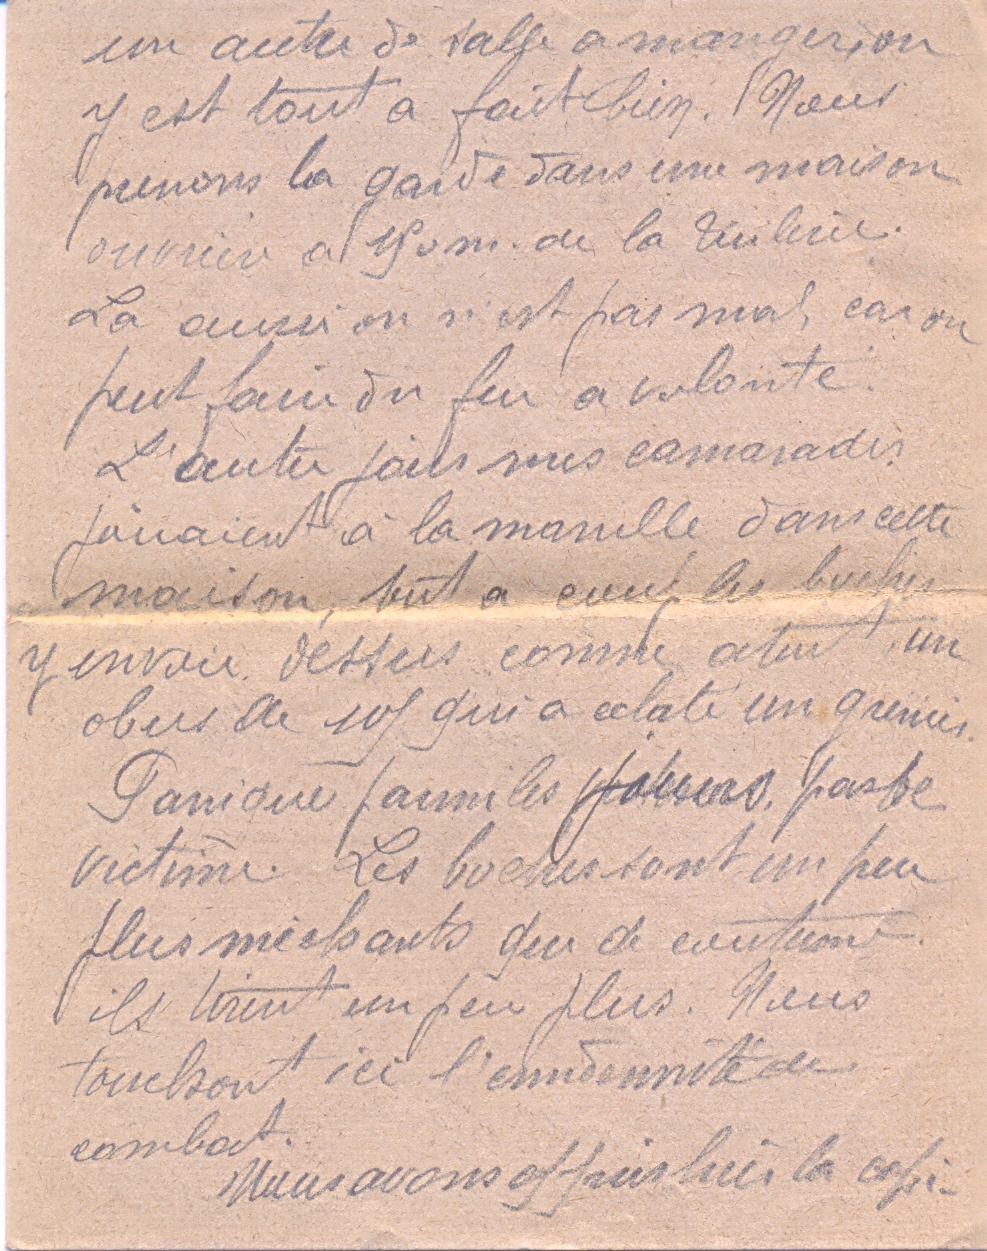 un autre de salle a manger, on
y est tout a fait bien. Nous
prenons la garde dans une maison
ouvrière a 150 m. de la
La aussi on n'est pas mal, car on
peut faire du feu a volonté.
L'autre jour mes camarades
jouaient à la manille dans cette
maison, tout a coup les boches
y envoie dessus comme atout, un
obus de 105 qui a eclaté un grenier.
Panique parmi les joueurs, pas de
victime. Les boches sont un peu
plus méchants que de coutume
ils tirent un peu plus. Nous
touchont ici l'enndemnité de
combat.
Nous avons appris hier la capi-